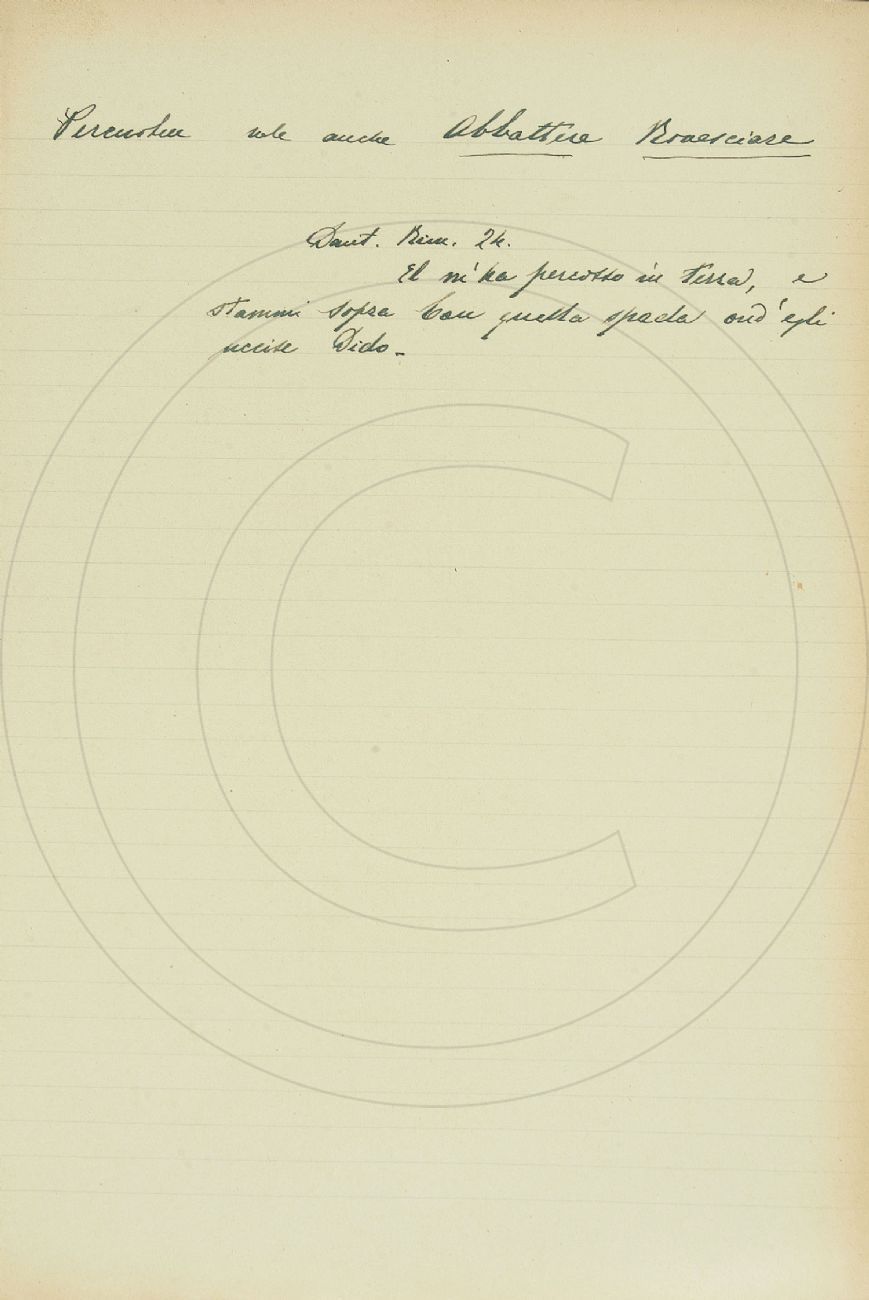 Percuotere vale anche Abbattere Rovesciare
Dant. Rim. 24.
El m'ha percosso in terra, e
stammi sopra Con quella spada ond'egli
uccise Dido.